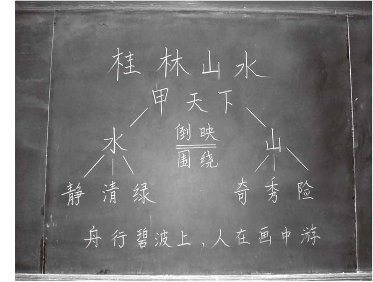 桂林山水
甲天下
水 倒映 山
围绕
静 清 绿 奇 秀 险
舟行碧波上，人在画中游